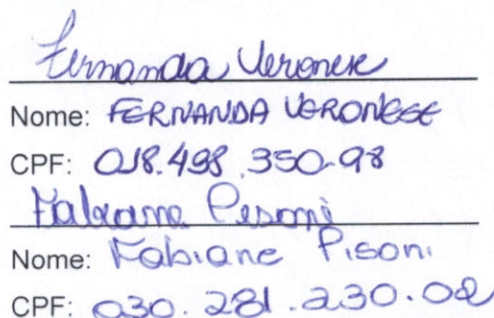 Fernanda Veronese
Nome: FERNANDA VERONESE
CPF: 018.498.350-98
Fabiane Pisoni
Nome: Fabiane Pisoni
CPF: 030.281.230-02